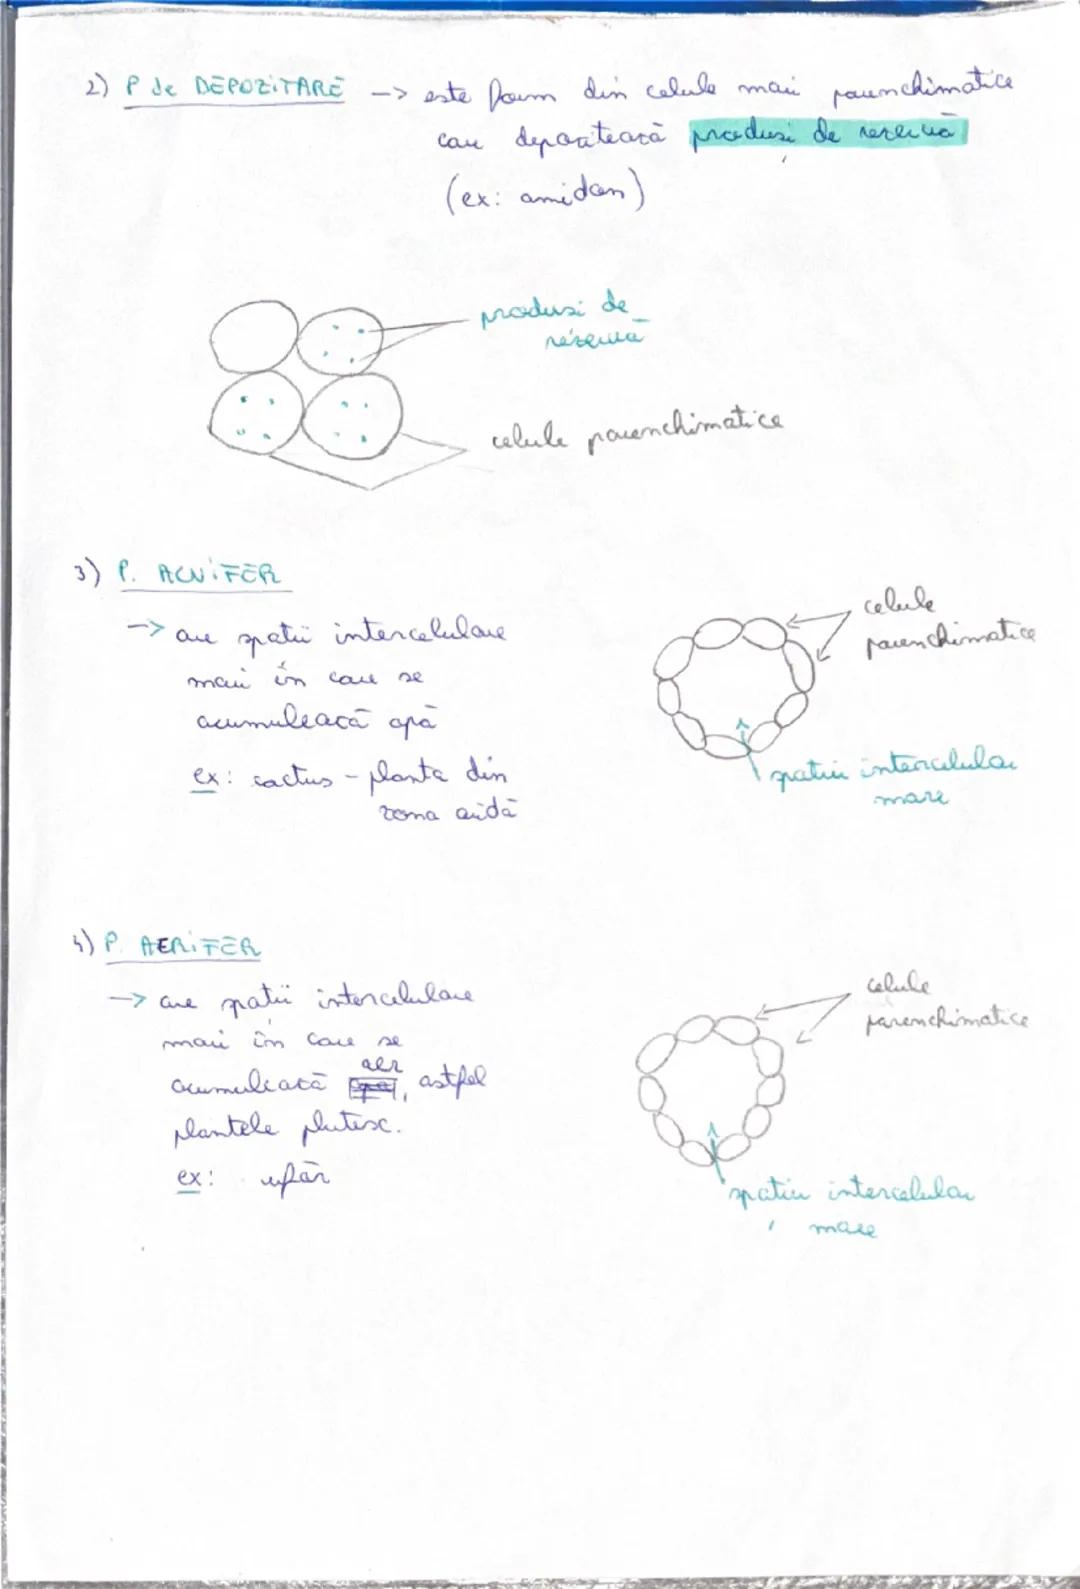 2) P de DEPOZITARE -> este form din celule mari parenchimatice
care depozitează produsi de rezervă
(ex: amidon)
produsi de
rezervă
celule parenchimatice
3) P. ACVIFER
-> are spatii intercelulare
mari în care se
acumulează apă
ex: cactus - planta din
zona aridă
celule
parenchimatice
spatiu intercelular
mare
4) P. AERIFER
-> are spatii intercelulare
mari în care se
aer
acumulează apă, astfel
plantele plutesc.
ex: nufăr
celule
parenchimatice
spatiu intercelular
mare